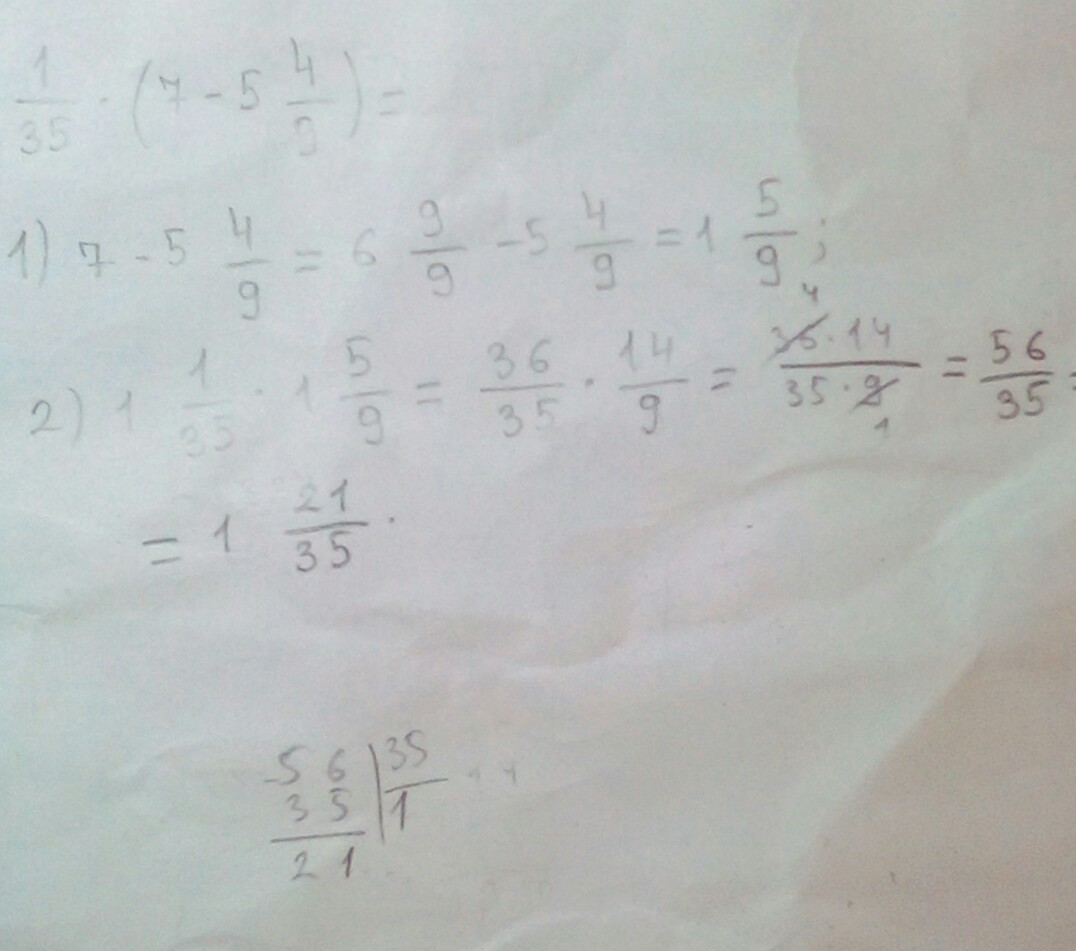 1/35 · (7 - 5 4/9) =
1) 7 - 5 4/9 = 6 9/9 - 5 4/9 = 1 5/9;
2) 1 1/35 · 1 5/9 = 36/35 · 14/9 = 36 4 · 14 / 35 · 9 1 = 56/35 =
= 1 21/35.
-56 | 35
35 | 1
21